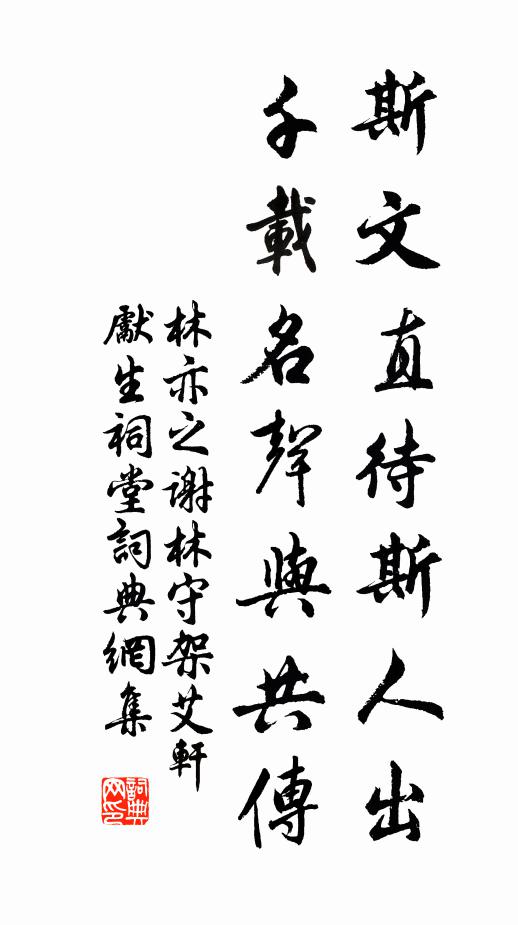 斯文直待斯人出
千載名聲與共傳
林亦之謝林守架艾軒
獻生祠堂詞典網集
詞典網印